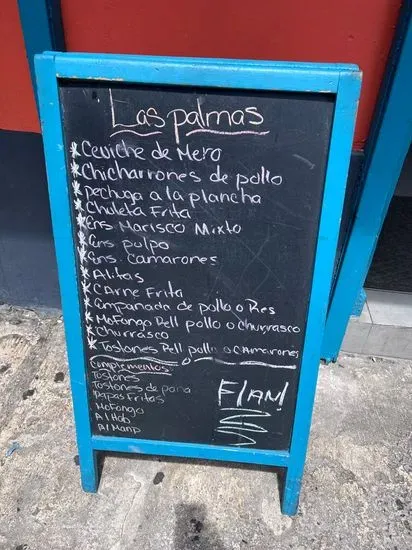 Las palmas
*Ceviche de Mero
*Chicharrones de pollo
*pechuga a la plancha
*Chuleta Frita
*Ens Marisco Mixto
*Ens pulpo
*Ens Camarones
*Alitas
*CArne Frita
*Empanada de pollo o Res
*Mofongo Rell pollo o churrasco
*Churrasco
*Tostones Rell pollo o CAmarones
Complementos
Tostones
Tostones de pana
Papas Fritas
Mofongo
A/Hab
A/Mamp
FlAN!